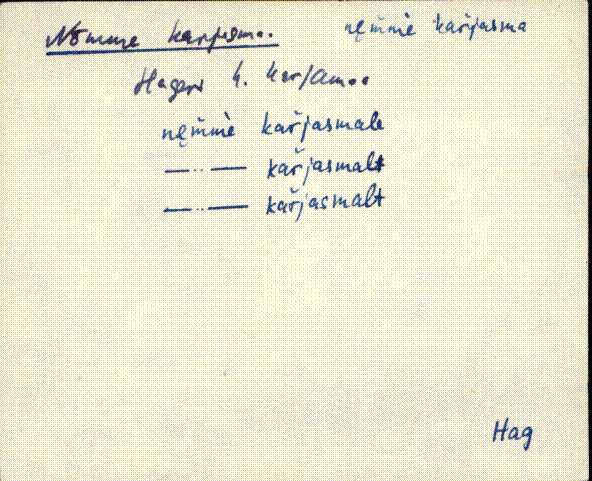 Nõmme karjasma. nęm̆mè kařjasma
Hageri k. Kar/amaa
nęm̆mè kařjasmale
—..— kařjasmalt
—..— kařjasmalt
Hag